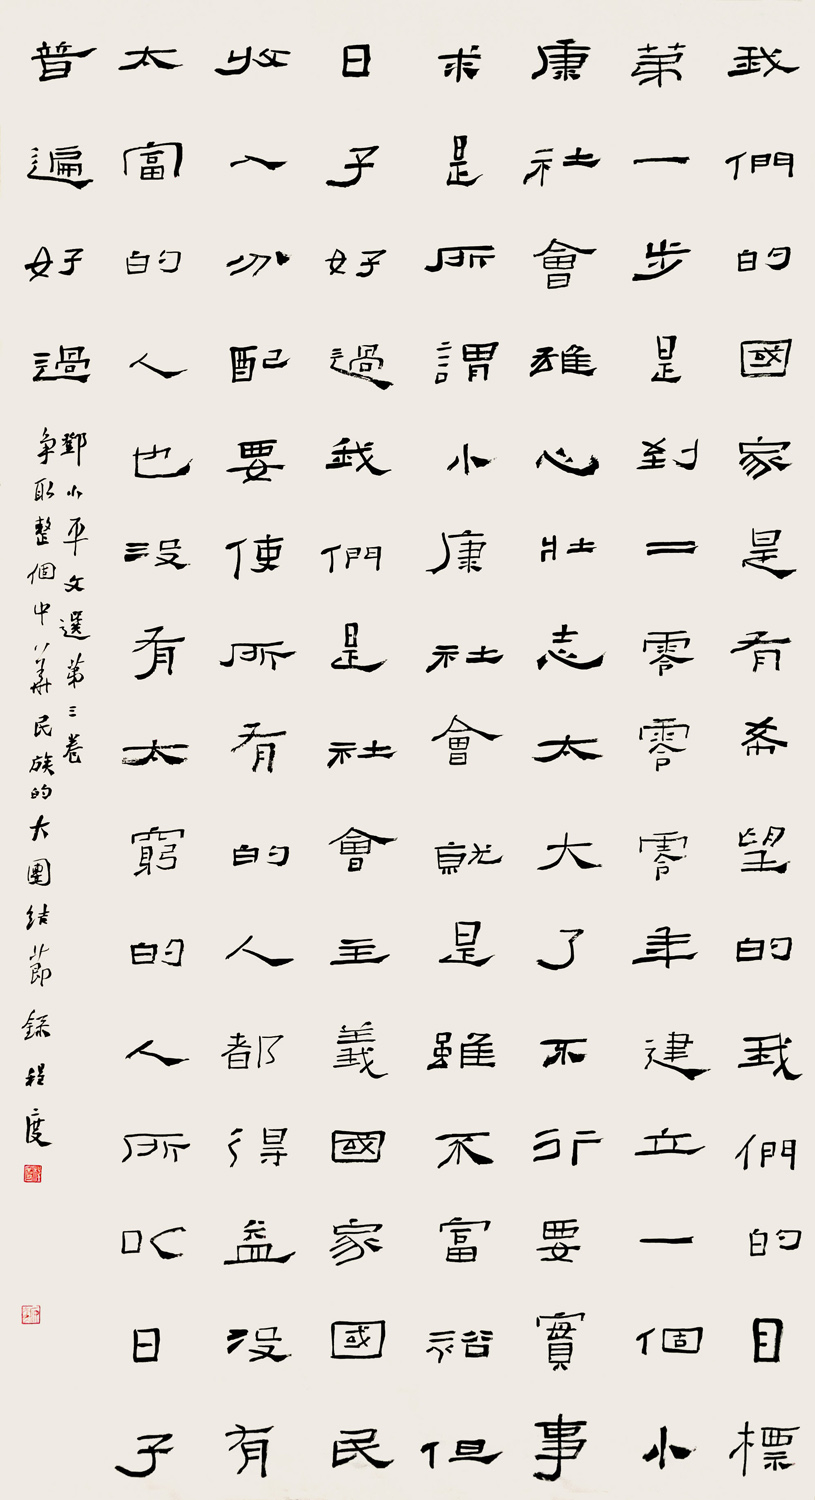 我們的國家是有希望的我們的目標
第一步是到二零零零年建立一個小
康社會雄心壯志太大了不行要實事
求是所謂小康社會就是雖不富裕但
日子好過我們是社會主義國家國民
收入分配要使所有的人都得益沒有
太富的人也沒有太窮的人所以日子
普遍好過
鄧小平文選第三卷
争取整個中華民族的大團結節錄程度